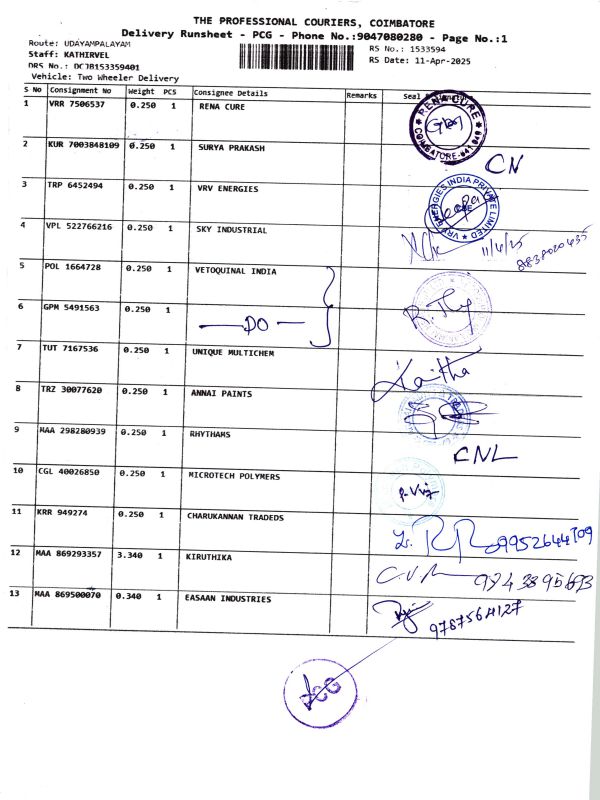 THE PROFESSIONAL COURIERS, COIMBATORE
Delivery Runsheet - PCG - Phone No.:9047080280 - Page No.:1
Route: UDAYAMPALAYAM
RS No.: 1533594
Staff: KATHIRVEL
RS Date: 11-Apr-2025
DRS No.: DCJB153359401
Vehicle: Two Wheeler Delivery
S No Consignment No Weight PCS Consignee Details Remarks Seal
1 VRR 7506537 0.250 1 RENA CURE
RENA CURE
COIMBATORE-641 049
2 KUR 7003848109 0.250 1 SURYA PRAKASH CN
3 TRP 6452494 0.250 1 VRV ENERGIES
VRV ENERGIES INDIA PRIVATE LIMITED
4 VPL 522766216 0.250 1 SKY INDUSTRIAL 11/4/25
8838020435
5 POL 1664728 0.250 1 VETOQUINAL INDIA
6 GPM 5491563 0.250 1 — DO —
7 TUT 7167536 0.250 1 UNIQUE MULTICHEM
8 TRZ 30077620 0.250 1 ANNAI PAINTS
9 MAA 298280939 0.250 1 RHYTHAMS CNL
10 CGL 40026850 0.250 1 MICROTECH POLYMERS
11 KRR 949274 0.250 1 CHARUKANNAN TRADEDS 9952644709
12 MAA 869293357 3.340 1 KIRUTHIKA
13 MAA 869500070 0.340 1 EASAAN INDUSTRIES
9787564127